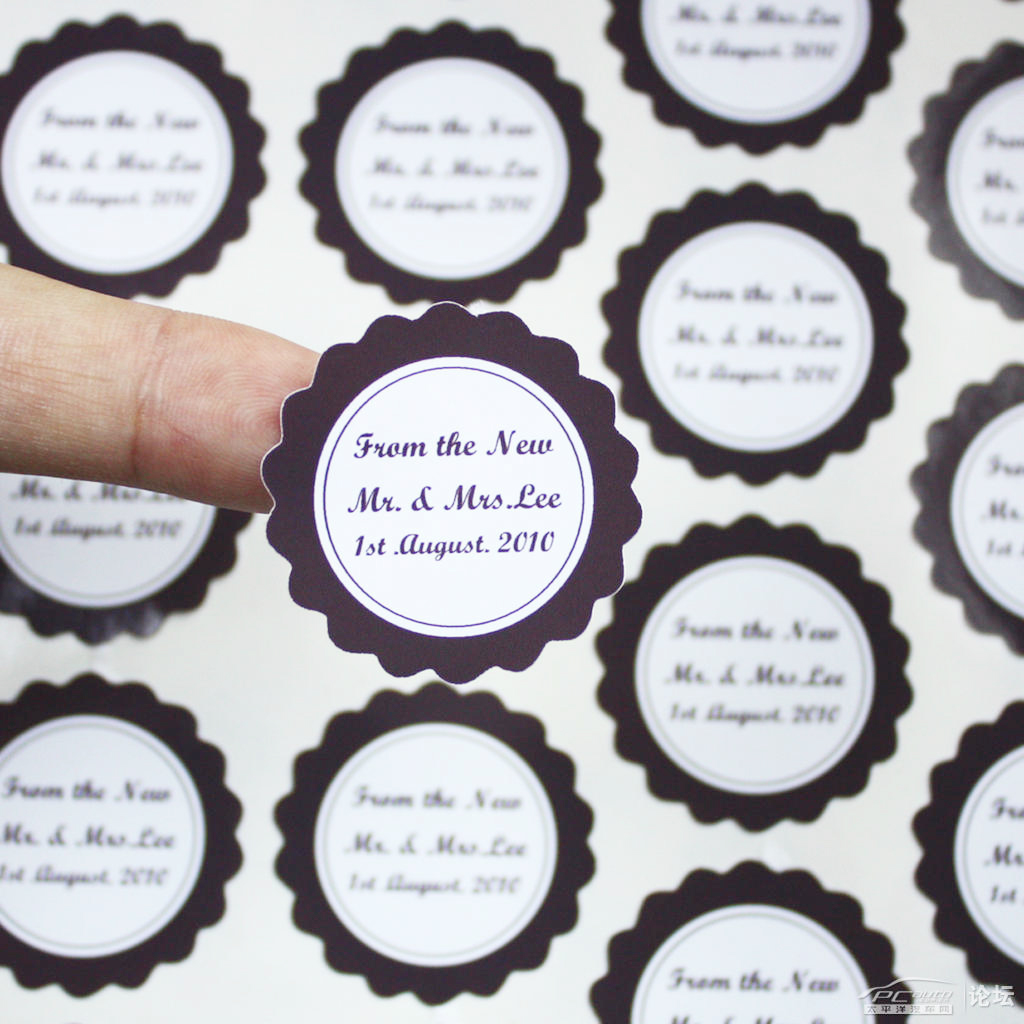 Mr. & Mrs.Lee
1st August. 2010
From the New
Mr. & Mrs.Lee
1st August. 2010
From the New
Mr. & Mrs.Lee
1st August. 2010
From the New
Mr. & Mrs.Lee
1st August. 2010
From the New
Mr. & Mrs.Lee
1st .August. 2010
Mr. & Mrs.Lee
1st August. 2010
From the New
Mr. & Mrs.Lee
1st August. 2010
From the New
Mr. & Mrs.Lee
1st August. 2010
From the New
Mr. & Mrs.Lee
1st August. 2010
From the New
PCauto
太平洋汽车网
论坛